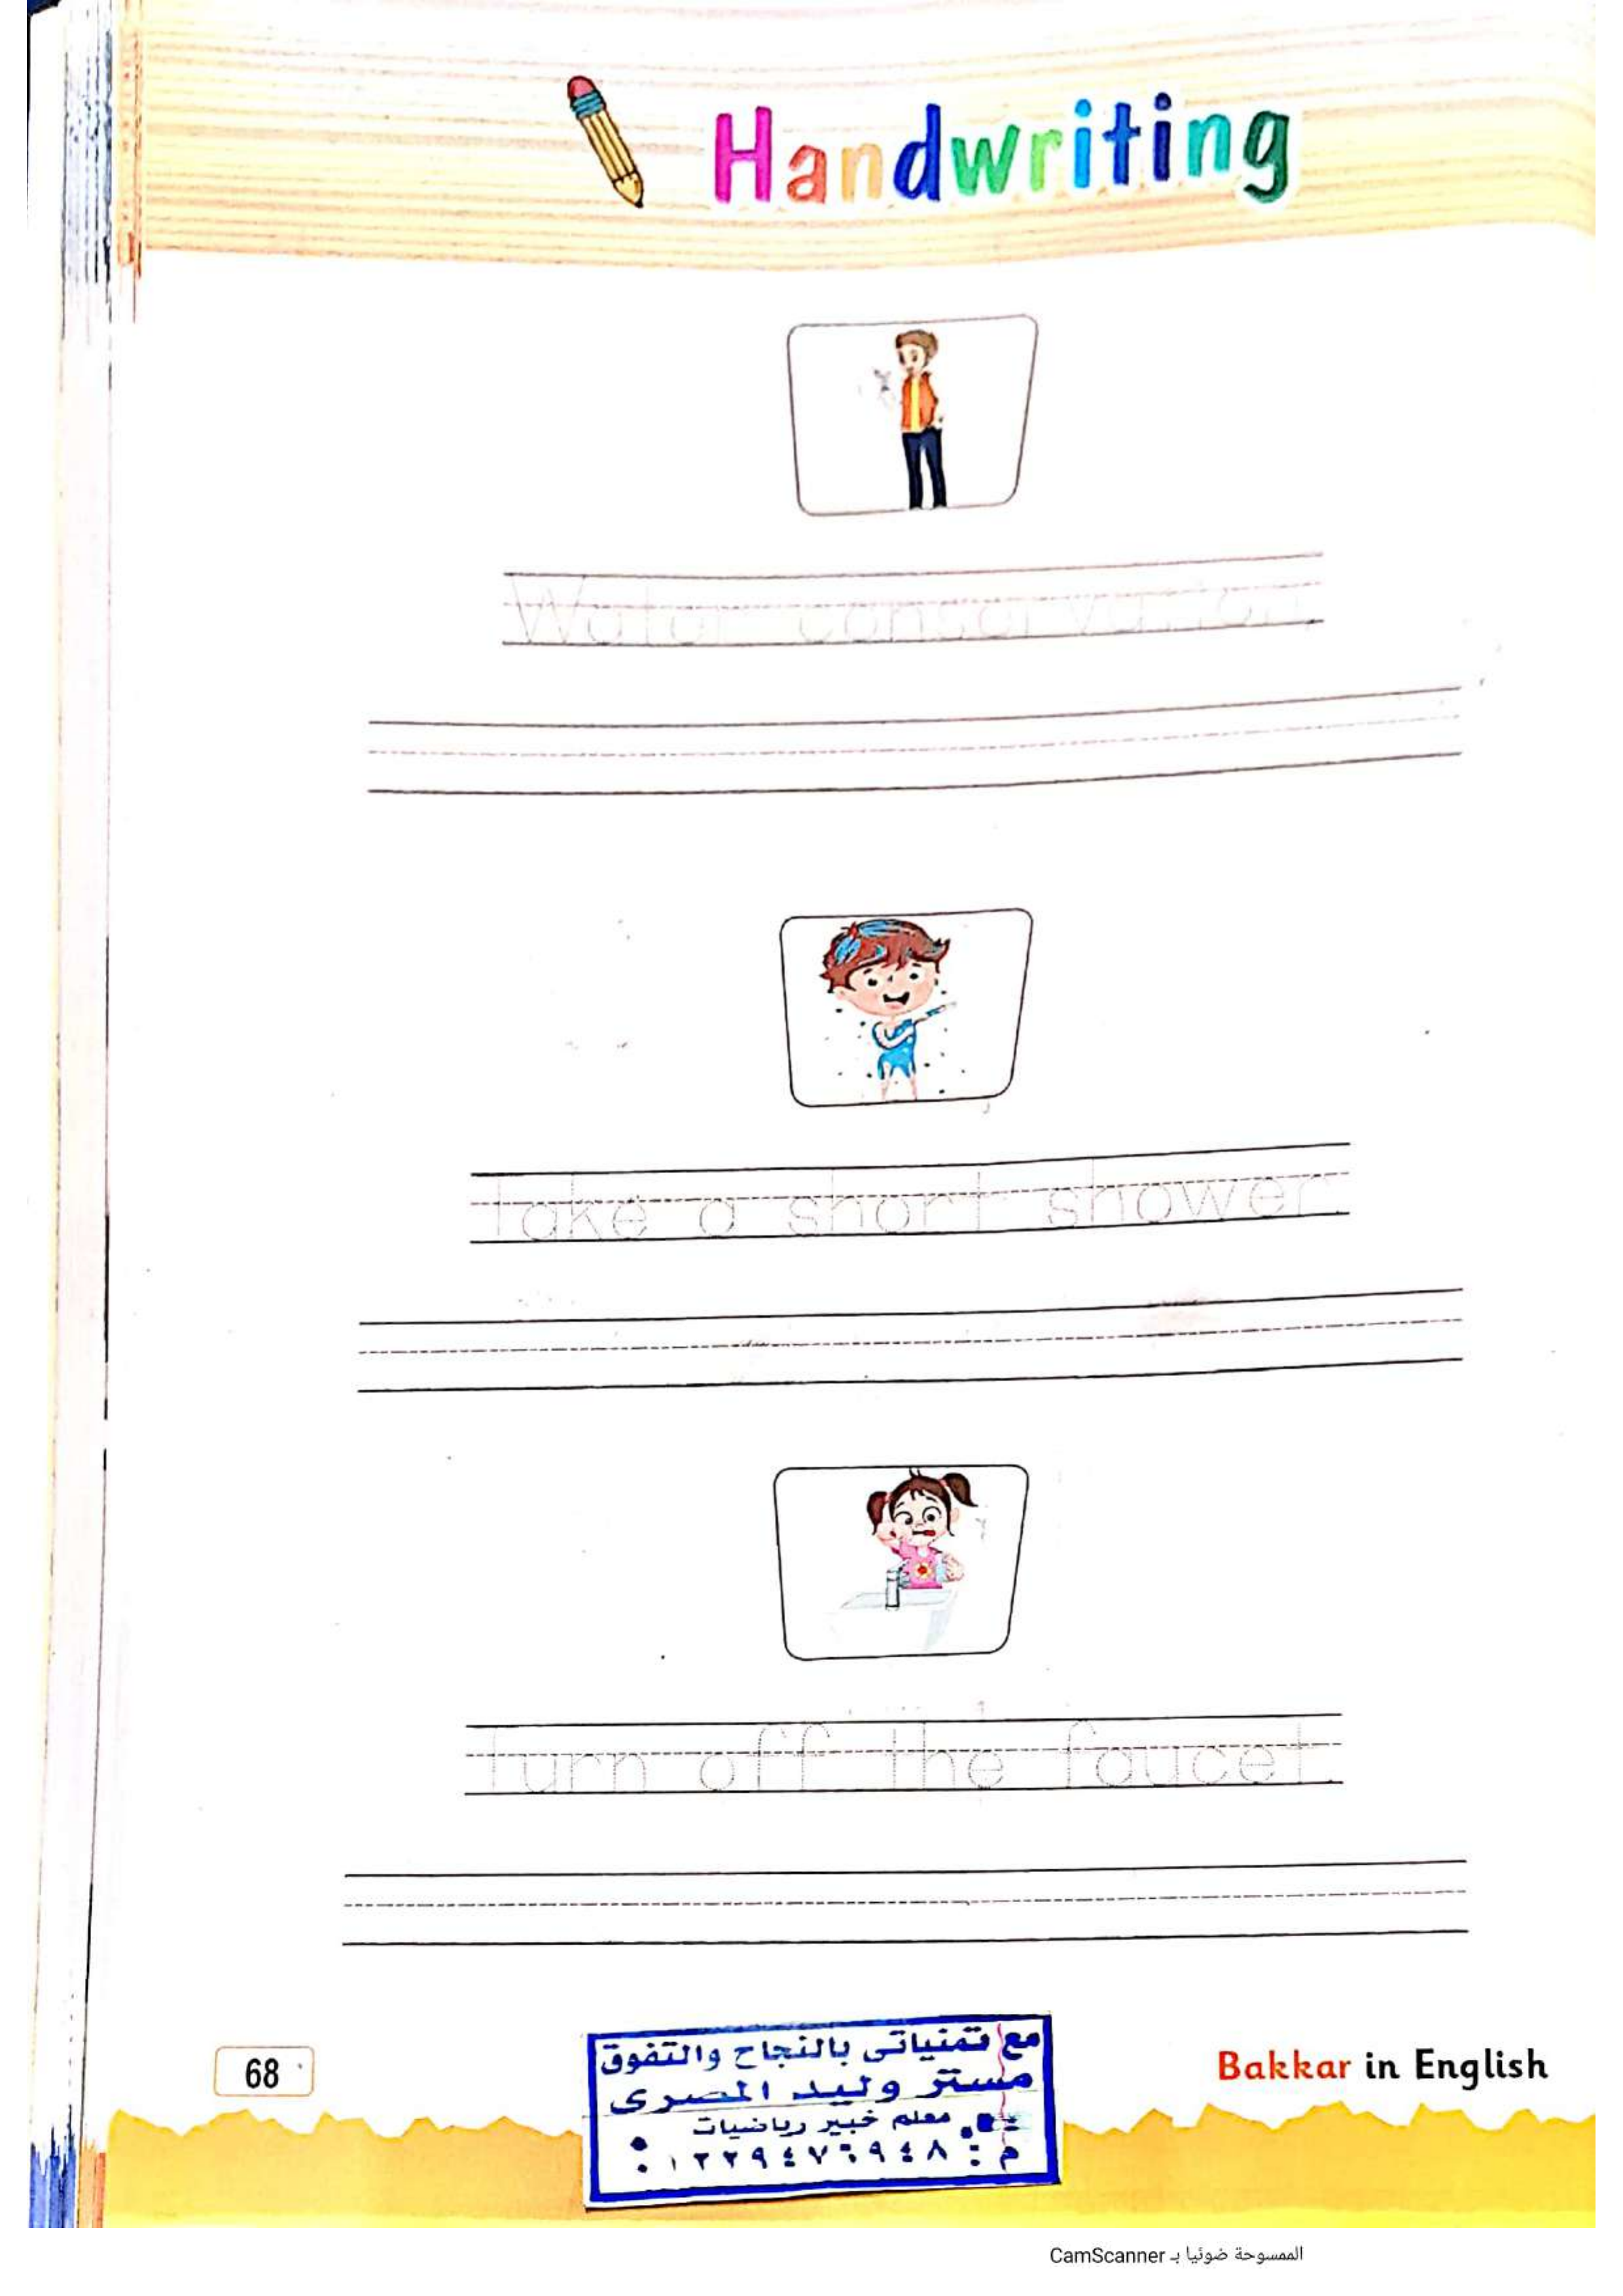 Handwriting
Water conservation
Take a short shower.
Turn off the faucet.
68
مع تمنياتى بالنجاح والتفوق
مستر وليد المصرى
معلم خبير رياضيات
Bakkar in English
الممسوحة ضوئيا بـ CamScanner